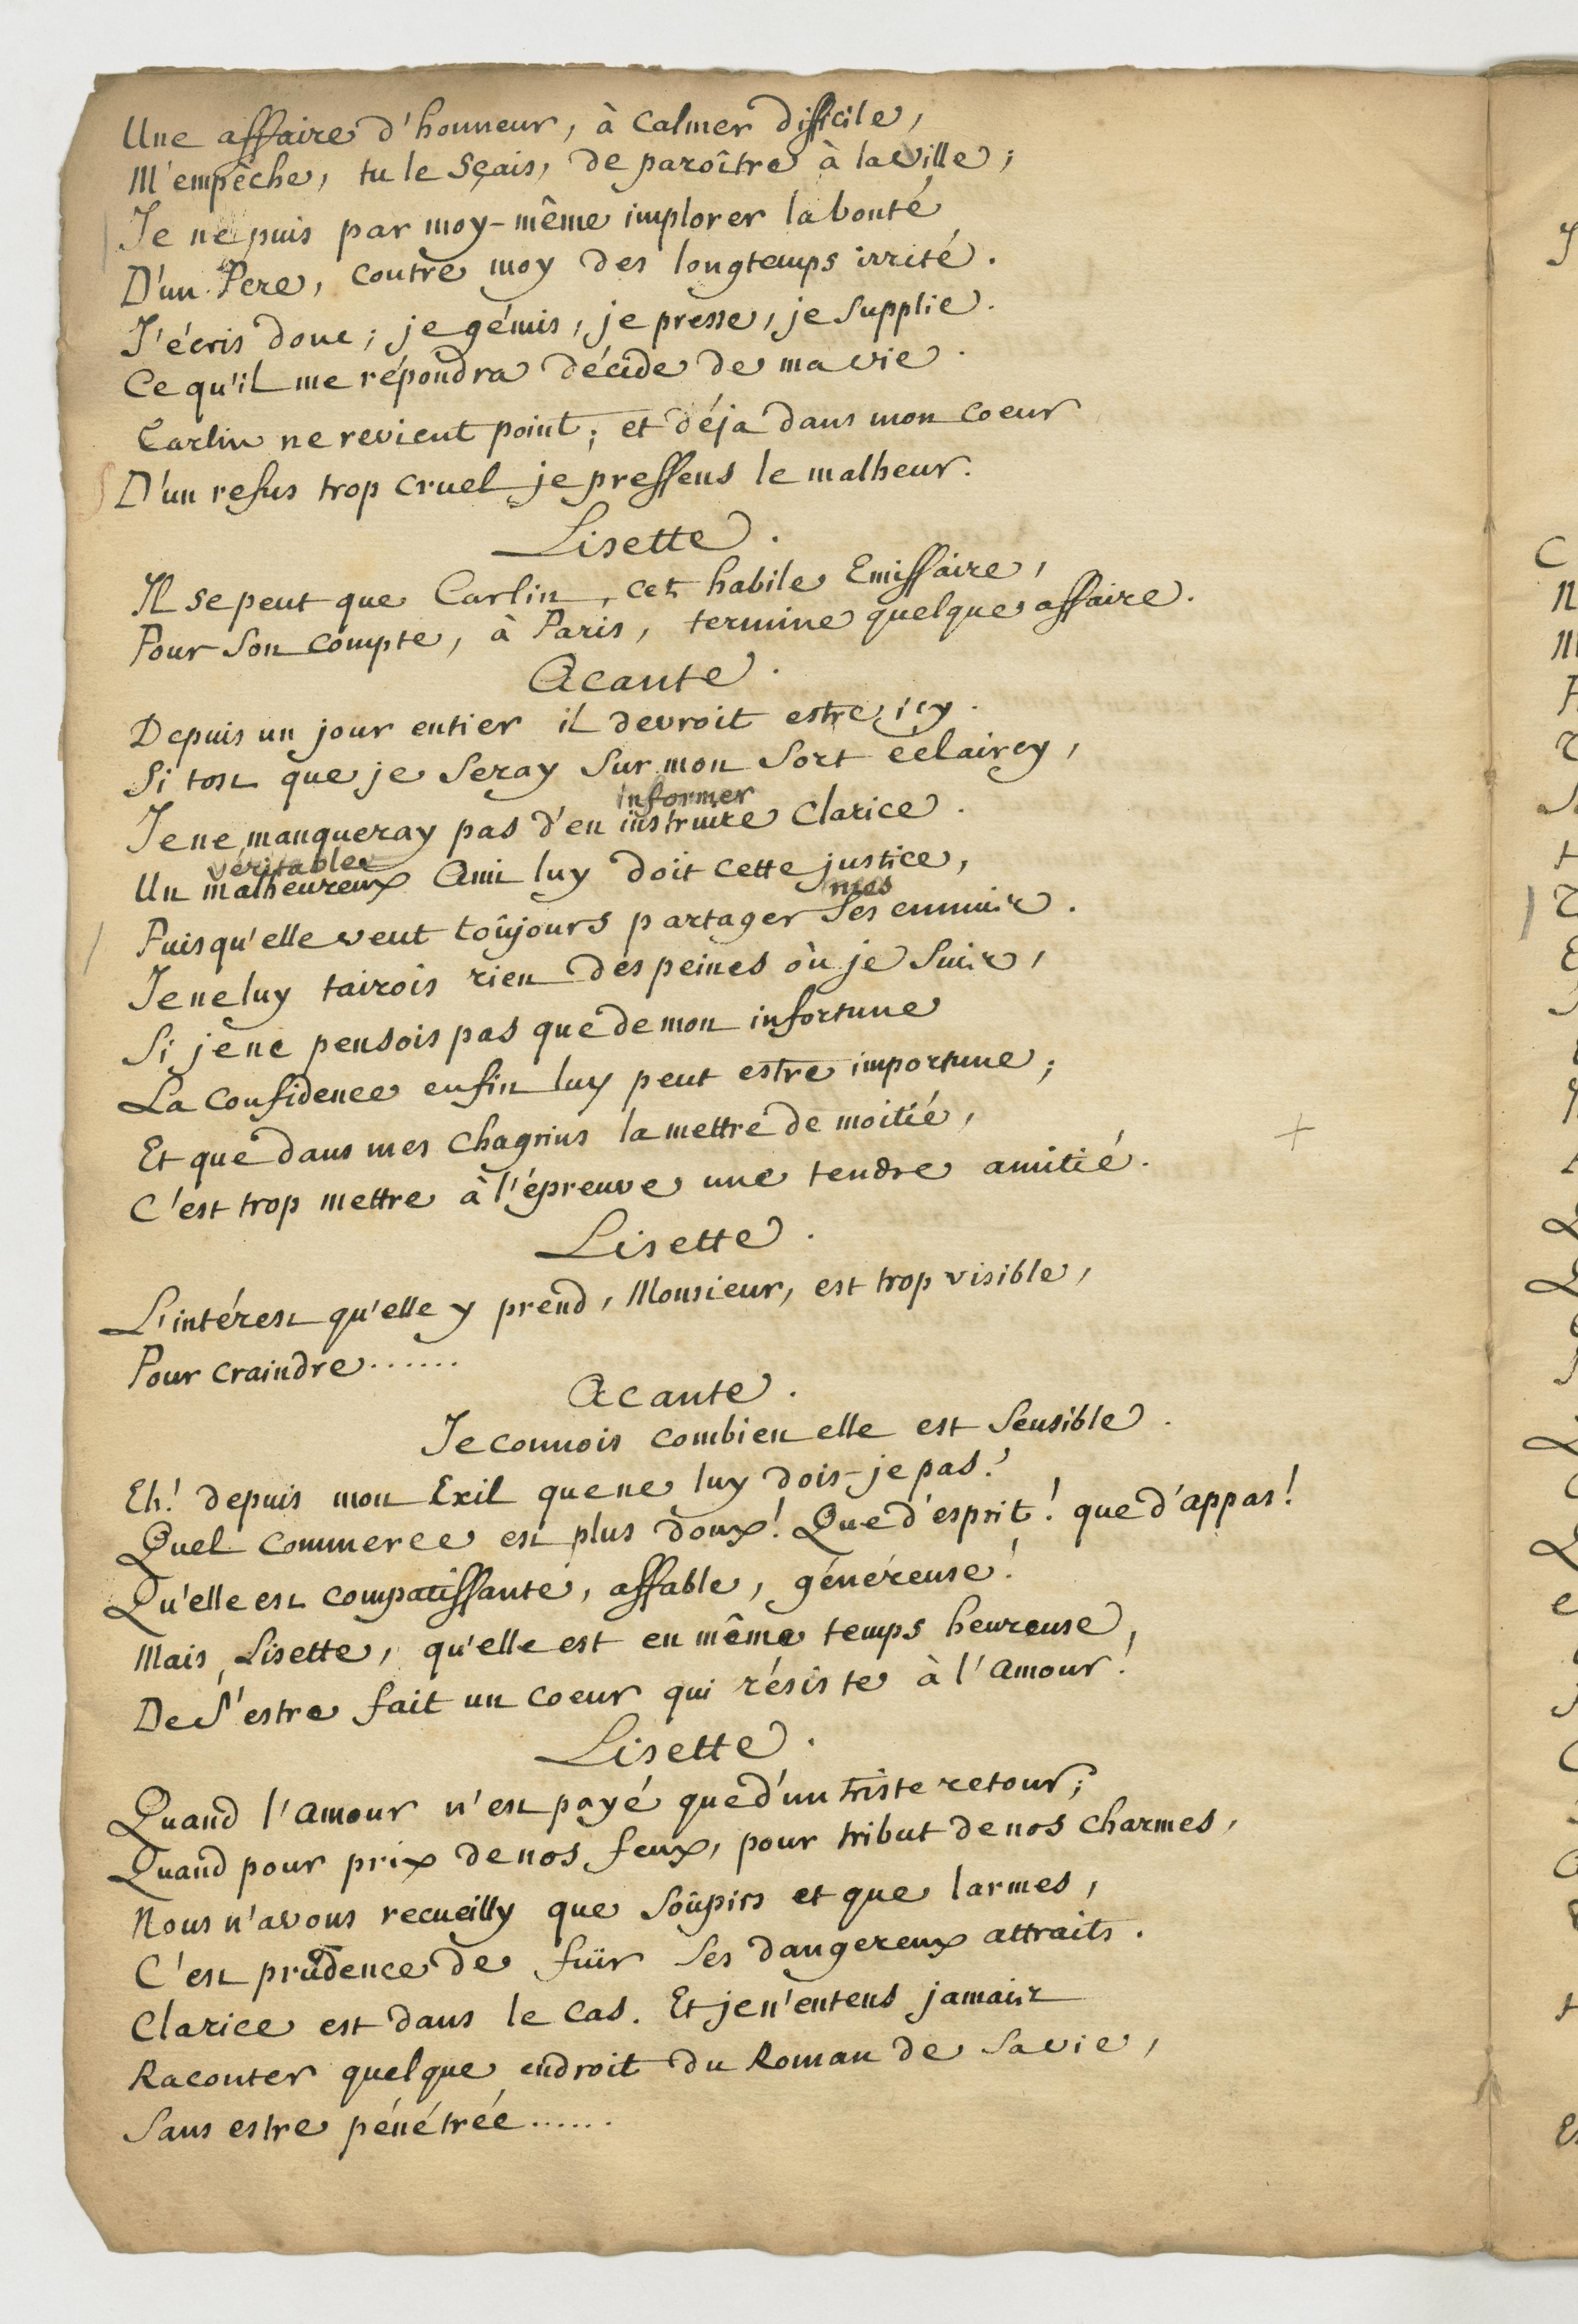 Une affaire d'honneur, à calmer difficile,
M'empêche, tu le sçais, de paroître à la ville;
Je ne puis par moy-même implorer la bonté
D'un Pere, contre moy des longtemps irrité.
J'écris donc; je gémis, je presse, je supplie.
Ce qu'il me répondra décide de ma vie.
Carlin ne revient point; et déja dans mon coeur
D'un refus trop cruel je pressens le malheur.
Lisette.
Il se peut que Carlin, cet habile Emissaire,
Pour son compte, à Paris, termine quelque affaire.
Acante.
Depuis un jour entier il devroit estre icy.
Si tost que je seray sur mon sort éclaircy,
informer
Je ne manqueray pas d'en instruire Clarice.
véritable
Un malheureux Ami luy doit cette justice,
mes
Puisqu'elle veut toûjours partager ses ennuis.
Je ne luy tairois rien des peines où je suis,
Si je ne pensois pas que de mon infortune
La confidence enfin luy peut estre importune;
Et que dans mes chagrins la mettre de moitié,
C'est trop mettre à l'épreuve une tendre amitié.
Lisette.
L'intérest qu'elle y prend, Monsieur, est trop visible,
Pour craindre......
Acante.
Je connois combien elle est sensible.
Eh! depuis mon Exil que ne luy dois-je pas!
Quel commerce est plus doux! Que d'esprit! que d'appas!
Qu'elle est compatissante, affable, généreuse!
Mais, Lisette, qu'elle est en même temps heureuse,
De s'estre fait un coeur qui résiste à l'amour!
Lisette.
Quand l'amour n'est payé que d'un triste retour;
Quand pour prix de nos feux, pour tribut de nos charmes,
Nous n'avons recueilly que soûpirs et que larmes,
C'est prudence de fuïr ses dangereux attraits.
Clarice est dans le cas. Et je n'entens jamais
Raconter quelque endroit du Roman de sa vie,
Sans estre pénétrée......